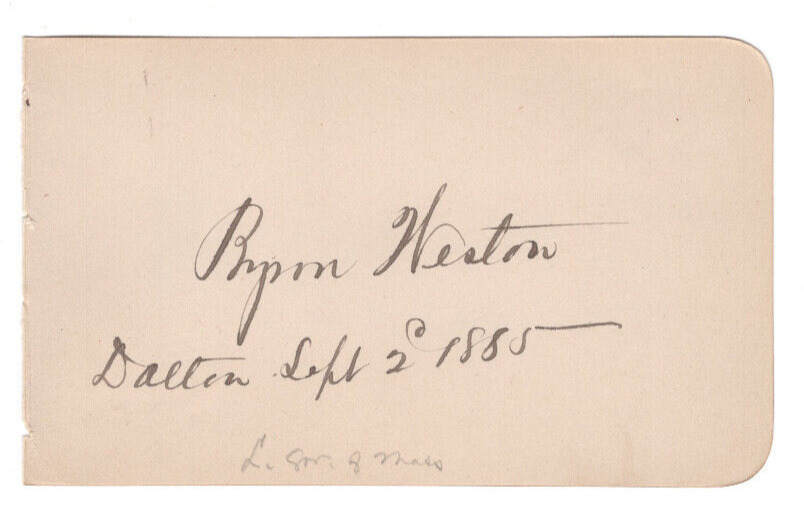 Byron Weston
Dalton Sept 2d 1885
L. Gov. of Mass